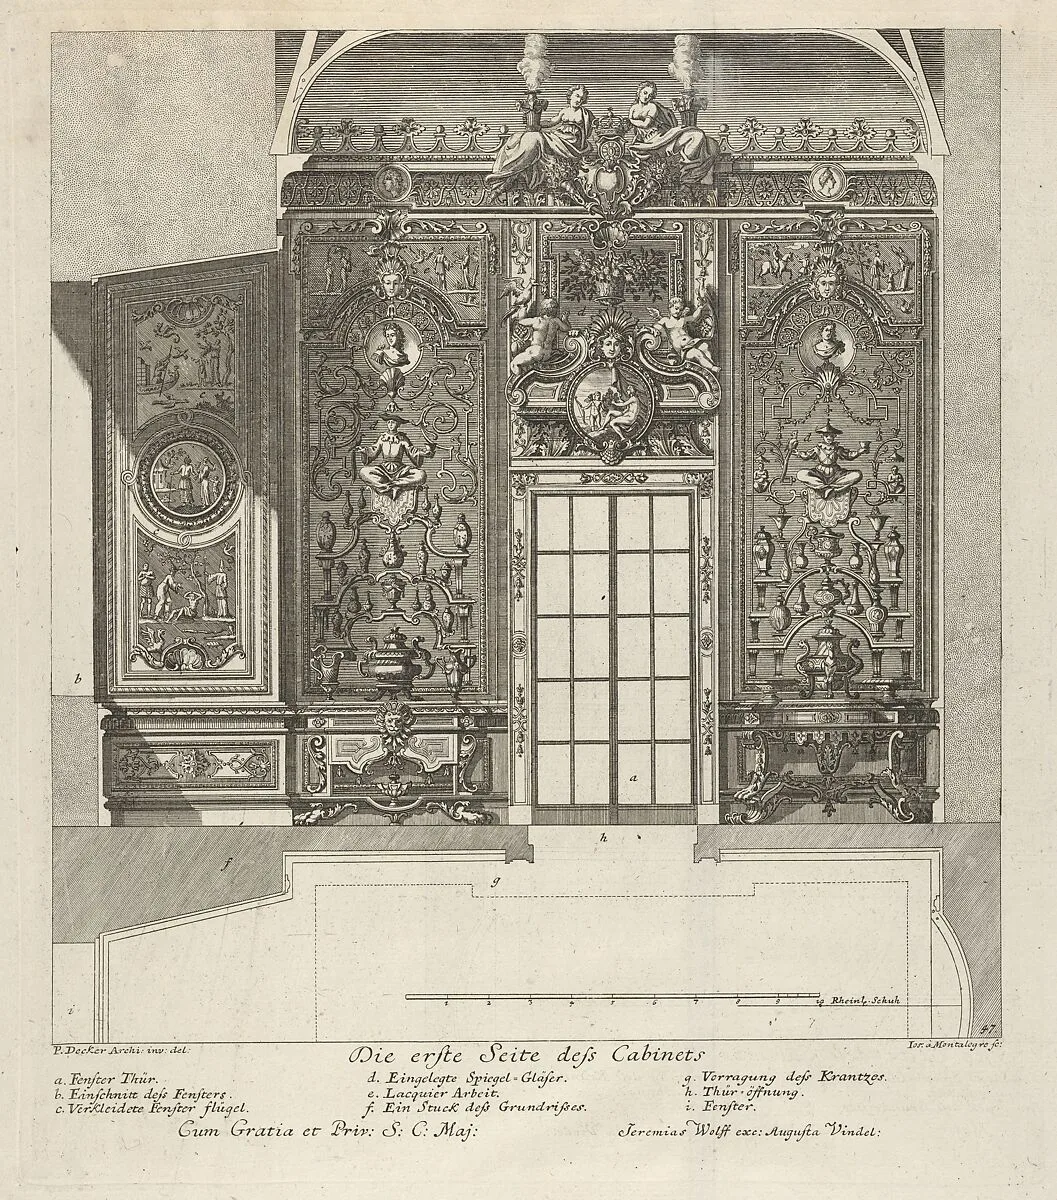 b
a
h
f
g
1 2 3 4 5 6 7 8 9 10 Rheinl. Schuh
i
47
P. Decker Archi: inv: del:
Ios: á Montalegre sc:
Die erste Seite dess Cabinets
a. Fenster Thür.
b. Einschnitt dess Fensters.
c. Verkleidete Fenster flügel.
d. Eingelegte Spiegel=Gläser.
e. Lacquier Arbeit.
f. Ein Stuck dess Grundrisses.
g. Vorragung dess Krantzes.
h. Thür=öffnung.
i. Fenster.
Cum Gratia et Priv: S: C: Maj:
Jeremias Wolff exc: Augusta Vindel: